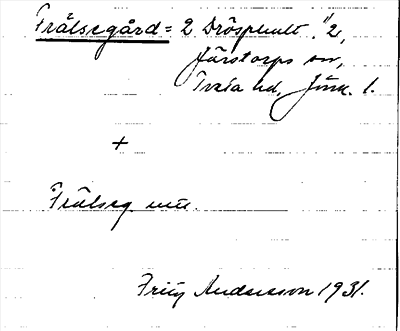 Frälsegård = 2 Drösphult "2,
Järstorps sn,
Tveta hd, Jönk. l.
+
Frälseg
Fritz Andersson 1931.